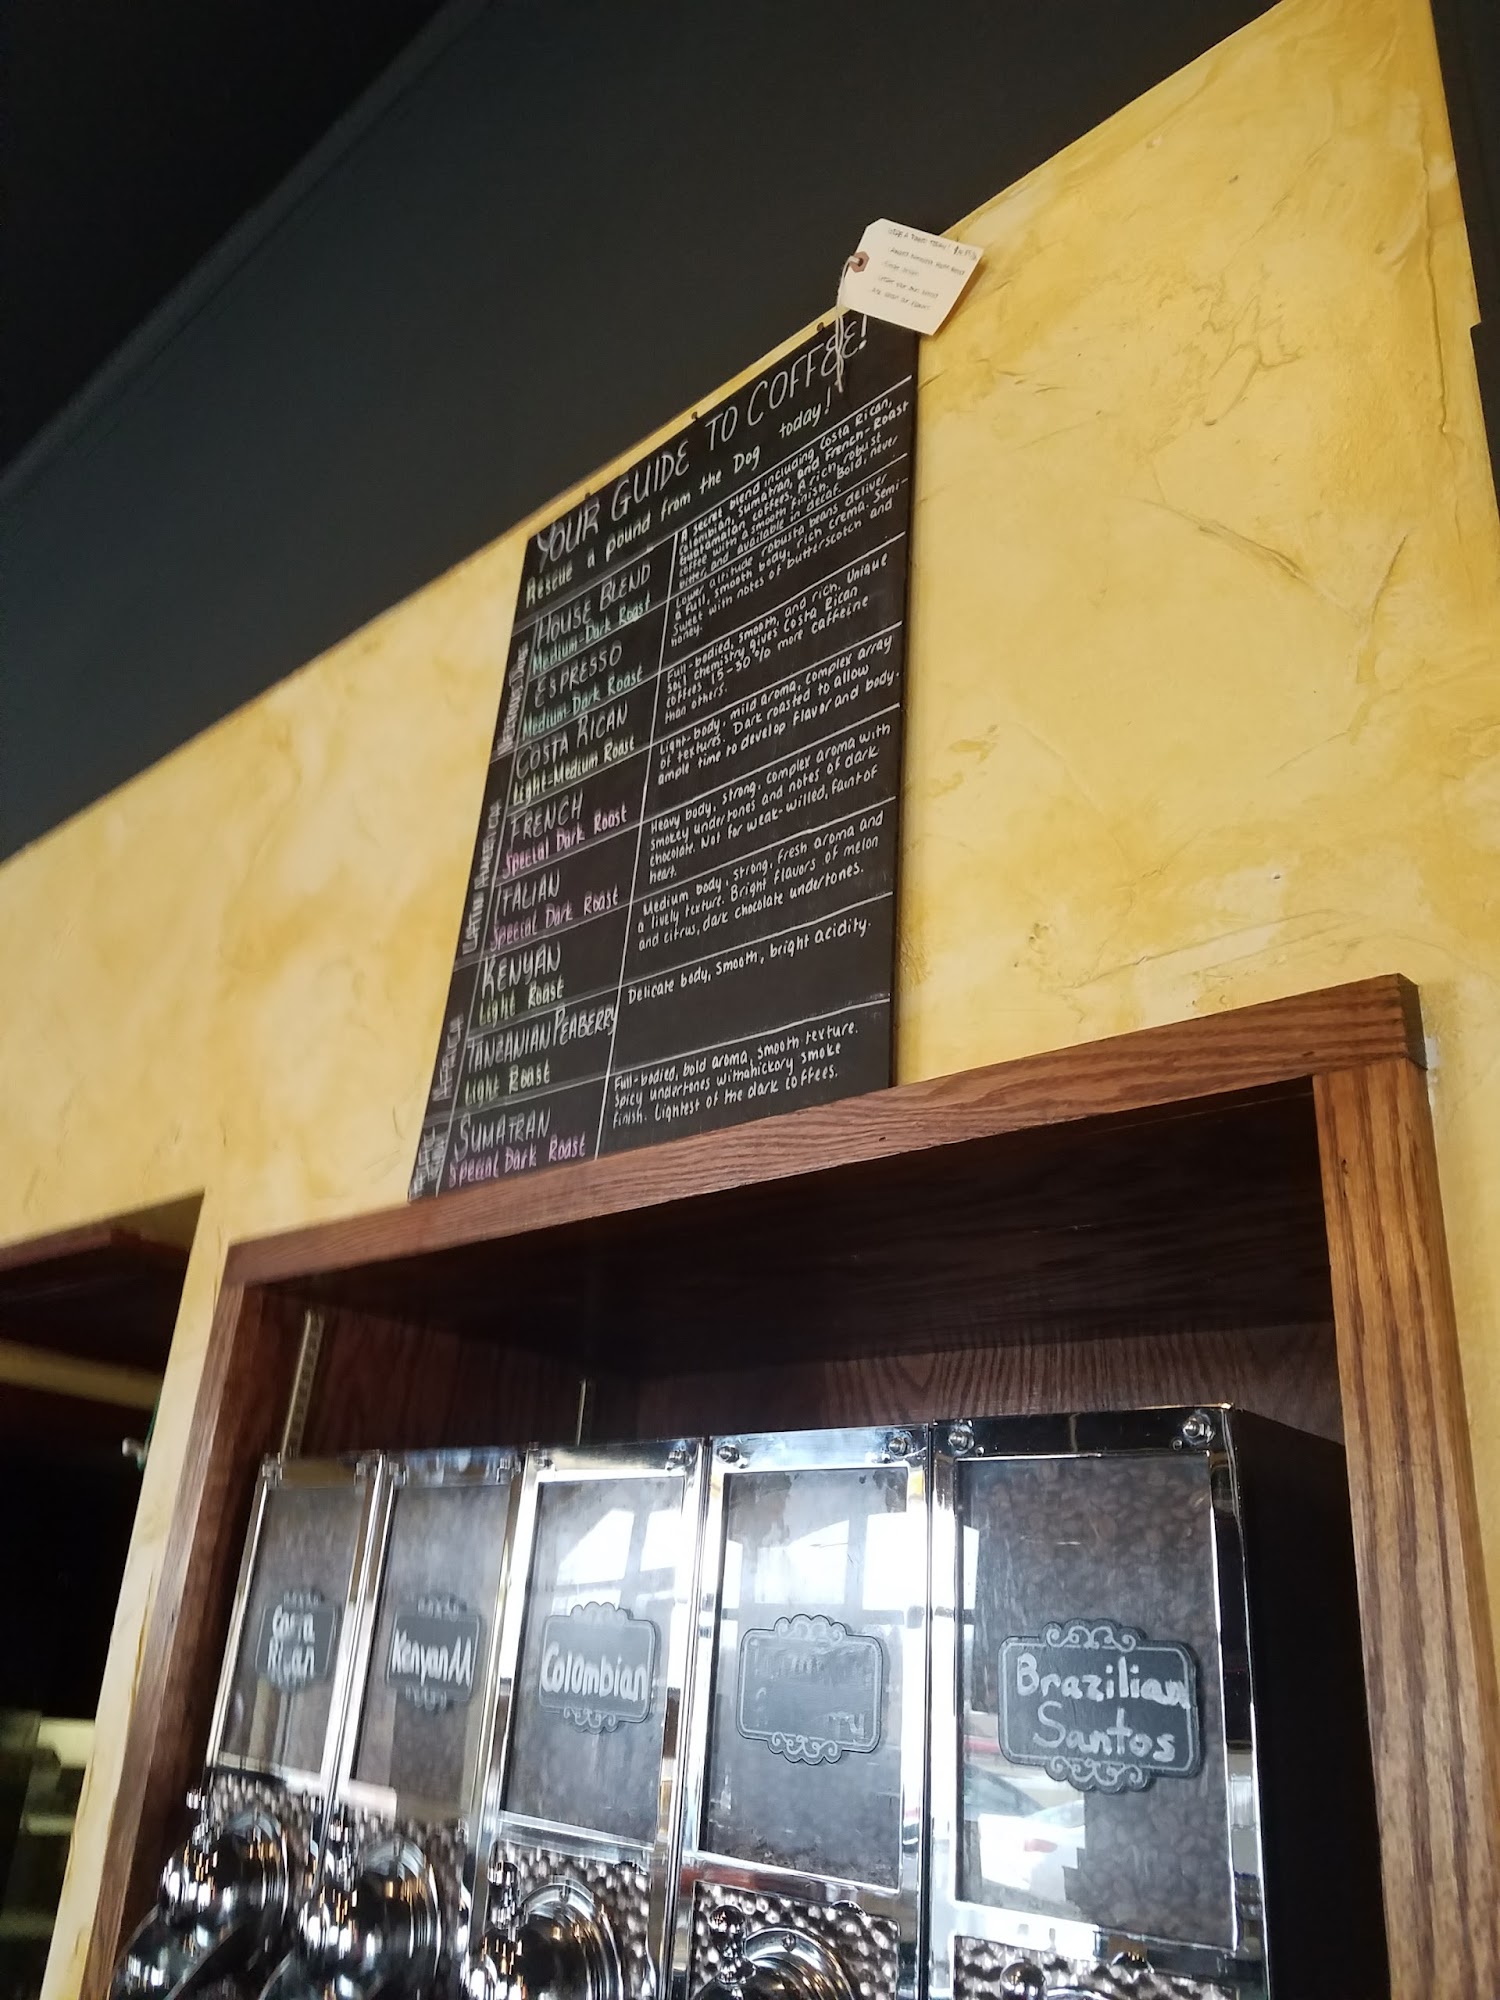 YOUR GUIDE TO COFFEE!
Rescue a pound from the Dog today!
HOUSE BLEND
Medium-Dark Roast
A secret blend including Costa Rican,
Colombian, Sumatran, and French-Roast
Guatamalan coffees. A rich robust
coffee with a smooth finish. Bold, never
bitter, and available in decaf.
ESPRESSO
Medium-Dark Roast
Lower altitude robusta beans deliver
a full, smooth body, rich crema. Semi-
sweet with notes of butterscotch and
honey.
LATIN AMERICA
COSTA RICAN
Light-Medium Roast
Full-bodied, smooth, and rich. Unique
soil chemistry gives Costa Rican
coffees 15-30% more caffeine
than others.
FRENCH
Special Dark Roast
Light-body, mild aroma, complex array
of textures. Dark roasted to allow
ample time to develop flavor and body.
ITALIAN
Special Dark Roast
Heavy body, strong, complex aroma with
smokey undertones and notes of dark
chocolate. Not for weak-willed, faint of
heart.
AFRICA
KENYAN
Light Roast
Medium body, strong, fresh aroma and
a lively texture. Bright flavors of melon
and citrus, dark chocolate undertones.
TANZANIAN PEABERRY
Light Roast
Delicate body, smooth, bright acidity.
SUMATRAN
Special Dark Roast
Full-bodied, bold aroma, smooth texture.
Spicy undertones with a hickory smoke
finish. Lightest of the dark coffees.
Rican
Kenyan
Colombian
Brazilian
Santos